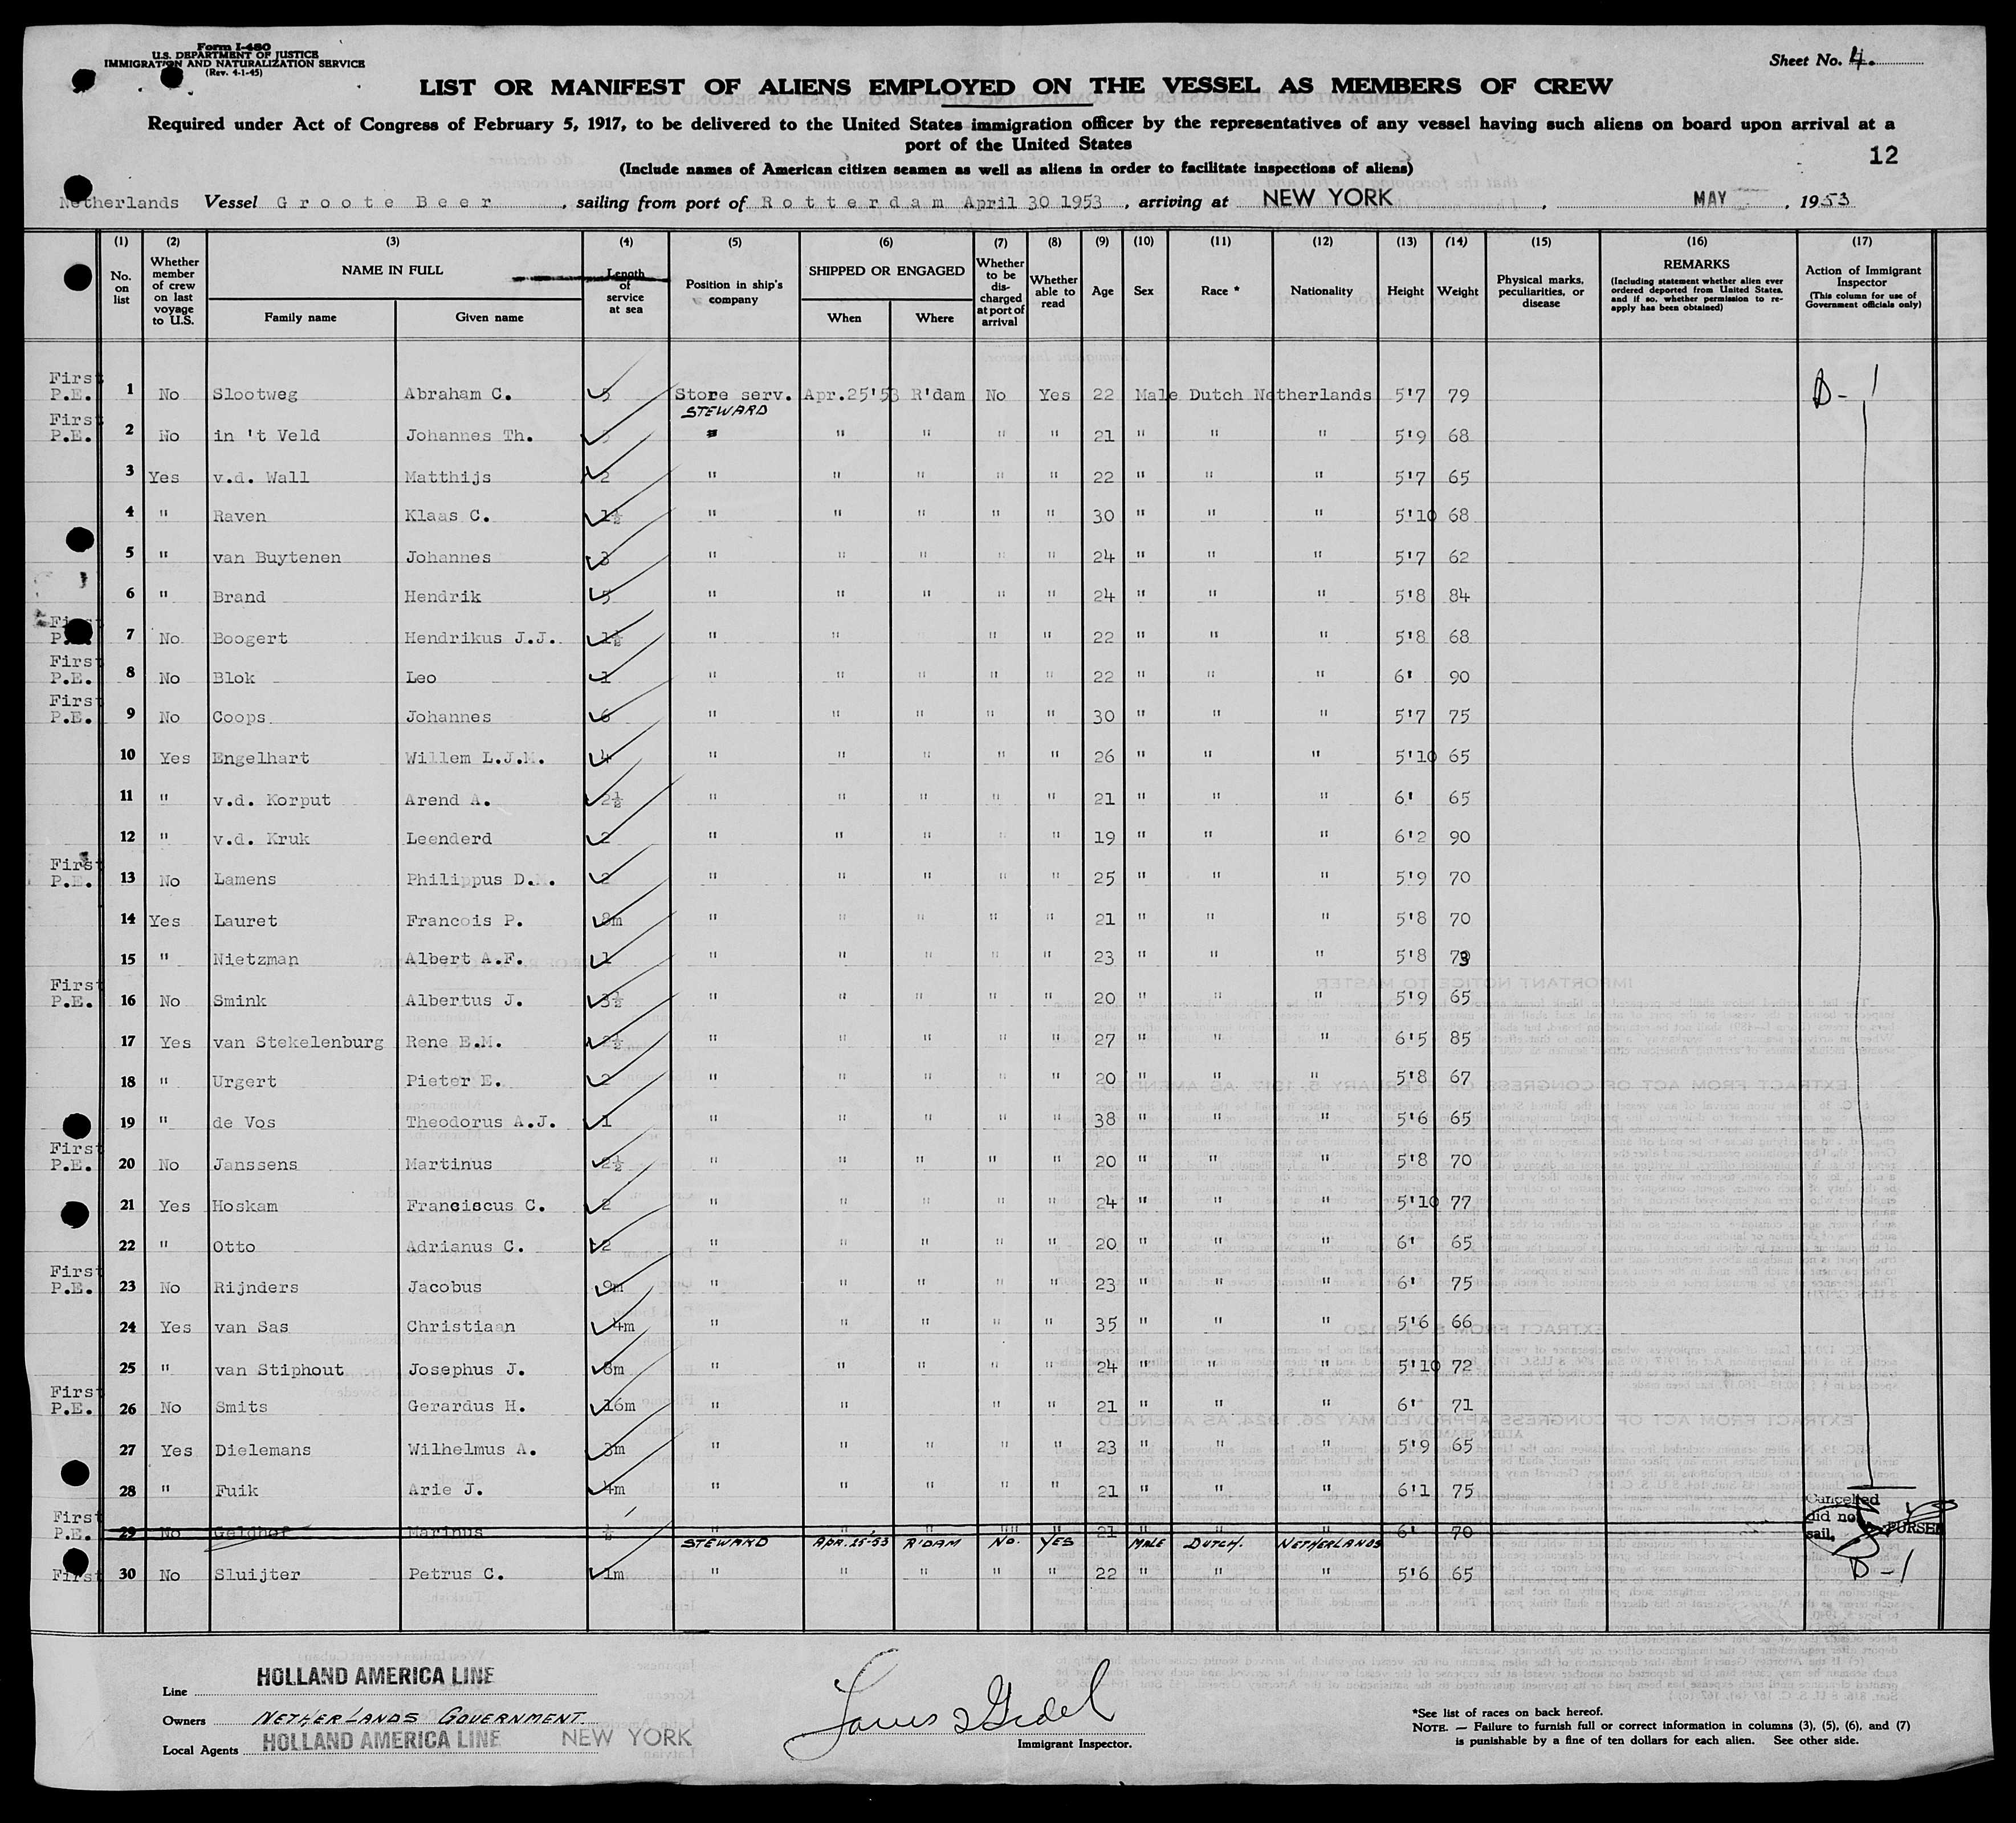 Form I-480
U.S. DEPARTMENT OF JUSTICE
IMMIGRATION AND NATURALIZATION SERVICE
(Rev. 4-1-45)
Sheet No. 4.
LIST OR MANIFEST OF ALIENS EMPLOYED ON THE VESSEL AS MEMBERS OF CREW
Required under Act of Congress of February 5, 1917, to be delivered to the United States immigration officer by the representatives of any vessel having such aliens on board upon arrival at a
port of the United States
(Include names of American citizen seamen as well as aliens in order to facilitate inspections of aliens)
12
Netherlands Vessel Groote Beer, sailing from port of Rotterdam April 30 1953, arriving at NEW YORK, MAY, 1953
(1) (2) (3) (4) (5) (6) (7) (8) (9) (10) (11) (12) (13) (14) (15) (16) (17)
No. on list | Whether member of crew on last voyage to U.S. | NAME IN FULL | Family name | Given name | Length of service at sea | Position in ship's company | SHIPPED OR ENGAGED | When | Where | Whether to be discharged at port of arrival | Whether able to read | Age | Sex | Race * | Nationality | Height | Weight | Physical marks, peculiarities, or disease | REMARKS (Including statement whether alien ever ordered deported from United States, and if so, whether permission to re-apply has been obtained) | Action of Immigrant Inspector (This column for use of Government officials only)
First P.E. 1 No Slootweg Abraham C. 5 Store serv. Apr.25'53 R'dam No Yes 22 Male Dutch Netherlands 5'7 79 D-1
STEWARD
First P.E. 2 No in 't Veld Johannes Th. " " " " " 21 " " " 5'9 68
3 Yes v.d. Wall Matthijs 2 " " " " " 22 " " " 5'7 65
4 " Raven Klaas C. 1½ " " " " " 30 " " " 5'10 68
5 " van Buytenen Johannes 3 " " " " " 24 " " " 5'7 62
6 " Brand Hendrik 5 " " " " " 24 " " " 5'8 84
First P.E. 7 No Boogert Hendrikus J.J. 1½ " " " " 22 " " " 5'8 68
First P.E. 8 No Blok Leo 1 " " " " " 22 " " " 6' 90
First P.E. 9 No Coops Johannes 6 " " " " " 30 " " " 5'7 75
10 Yes Engelhart Willem L.J.M. 4 " " " " " 26 " " " 5'10 65
11 " v.d. Korput Arend A. 2½ " " " " " 21 " " " 6' 65
12 " v.d. Kruk Leenderd 2 " " " " " 19 " " " 6'2 90
First P.E. 13 No Lamens Philippus D. 2 " " " " " 25 " " " 5'9 70
14 Yes Lauret Francois P. 8m " " " " " 21 " " " 5'8 70
15 " Nietzman Albert A.F. 1 " " " " " 23 " " " 5'8 73
First P.E. 16 No Smink Albertus J. 3½ " " " " " 20 " " " 5'9 65
17 Yes van Stekelenburg Rene E.M. 2½ " " " " " 27 " " " 6'5 85
18 " Urgert Pieter E. 2 " " " " " 20 " " " 5'8 67
19 " de Vos Theodorus A.J. 1 " " " " " 38 " " " 5'6 65
First P.E. 20 No Janssens Martinus 2½ " " " " " 20 " " " 5'8 70
21 Yes Hoskam Franciscus C. 2 " " " " " 24 " " " 5'10 77
22 " Otto Adrianus C. 2 " " " " " 20 " " " 6' 65
First P.E. 23 No Rijnders Jacobus 9m " " " " " 23 " " " 6' 75
24 Yes van Sas Christiaan 4m " " " " " 35 " " " 5'6 66
25 " van Stiphout Josephus J. 8m " " " " " 24 " " " 5'10 72
First P.E. 26 No Smits Gerardus H. 16m " " " " 21 " " " 6' 71
27 Yes Dielemans Wilhelmus A. 3m " " " " " 23 " " " 5'9 65
28 " Fuik Arie J. 4m " " " " " 21 " " " 6'1 75
First P.E. 29 No Geldhof Marinus ½ " " " " " 21 6' 70 Cancelled did not sail, PURSER
STEWARD APR. 25-53 R'DAM No. YES MALE DUTCH. NETHERLANDS
First 30 No Sluijter Petrus C. 1m " " " " " 22 " " " 5'6 65 D-1
Line HOLLAND AMERICA LINE
Owners NETHERLANDS GOVERNMENT.
Local Agents HOLLAND AMERICA LINE NEW YORK
Immigrant Inspector.
*See list of races on back hereof.
NOTE. — Failure to furnish full or correct information in columns (3), (5), (6), and (7)
is punishable by a fine of ten dollars for each alien. See other side.